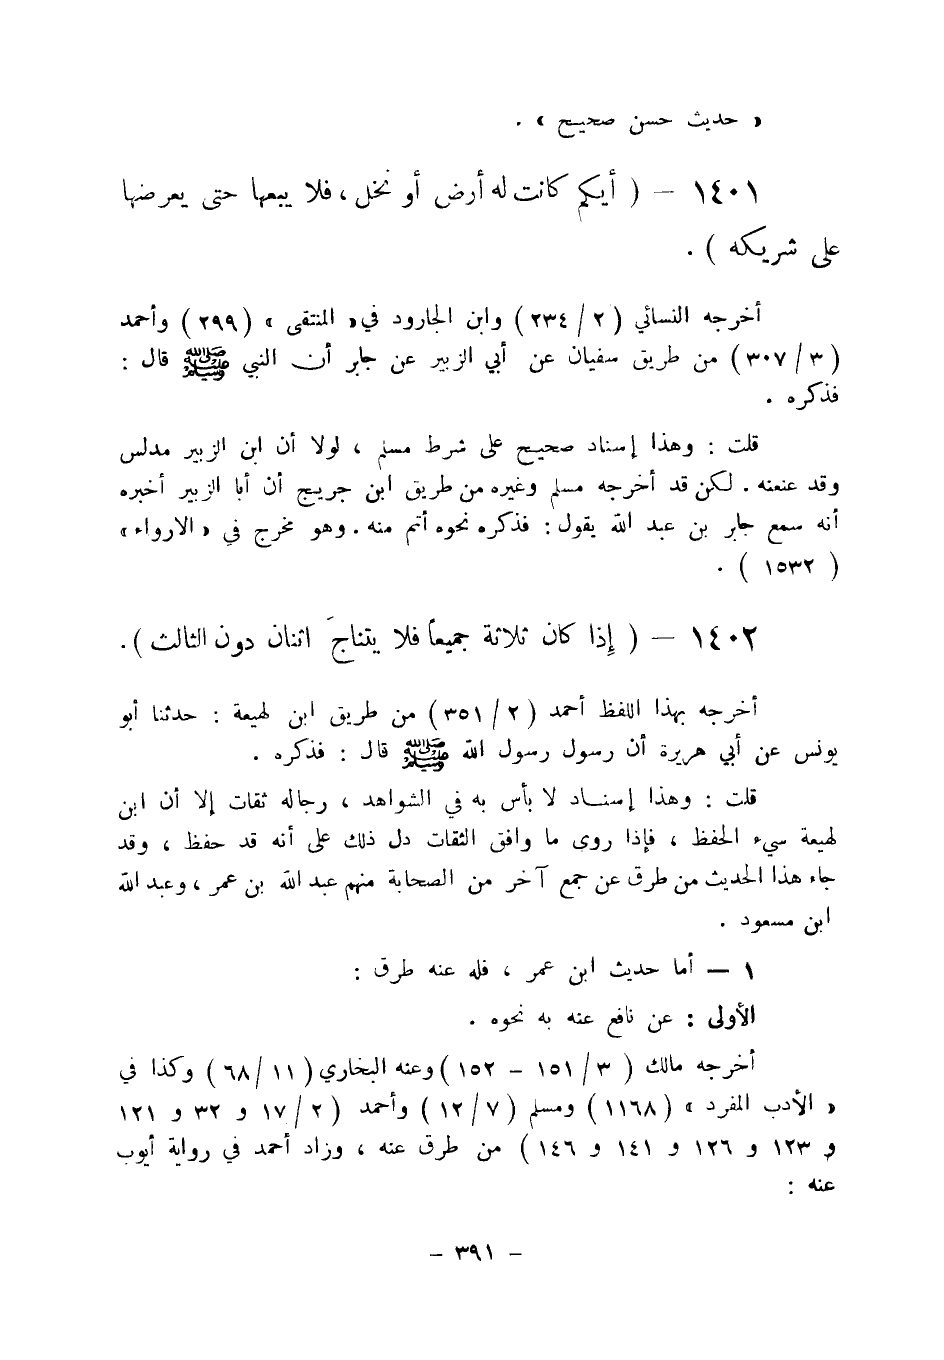 « حديث حسن صحيح » .
١٤٠١ – ( أيكم كانت له أرض أو نخل ، فلا يبعها حتى يعرضها
على شريكه ) .
أخرجه النسائي ( ٢ / ٢٣٤ ) وابن الجارود في « المنتقى » ( ٢٩٩ ) وأحمد
( ٣ / ٣٠٧ ) من طريق سفيان عن أبي الزبير عن جابر أن النبي ﷺ قال :
فذكره .
قلت : وهذا إسناد صحيح على شرط مسلم ، لولا أن ابن الزبير مدلس
وقد عنعنه . لكن قد أخرجه مسلم وغيره من طريق ابن جريج أن أبا الزبير أخبره
أنه سمع جابر بن عبد الله يقول : فذكره نحوه أتم منه . وهو مخرج في « الارواء »
( ١٥٣٢ ) .
١٤٠٢ – ( إذا كان ثلاثة جميعاً فلا يتناجَ اثنان دون الثالث ) .
أخرجه بهذا اللفظ أحمد ( ٢ / ٣٥١ ) من طريق ابن لهيعة : حدثنا أبو
يونس عن أبي هريرة أن رسول رسول الله ﷺ قال : فذكره .
قلت : وهذا إسناد لا بأس به في الشواهد ، رجاله ثقات إلا أن ابن
لهيعة سيء الحفظ ، فإذا روى ما وافق الثقات دل ذلك على أنه قد حفظ ، وقد
جاء هذا الحديث من طرق عن جمع آخر من الصحابة منهم عبد الله بن عمر ، وعبد الله
ابن مسعود .
١ – أما حديث ابن عمر ، فله عنه طرق :
الأولى : عن نافع عنه به نحوه .
أخرجه مالك ( ٣ / ١٥١ – ١٥٢ ) وعنه البخاري ( ١١ / ٦٨ ) وكذا في
« الأدب المفرد » ( ١١٦٨ ) ومسلم ( ٧ / ١٢ ) وأحمد ( ٢ / ١٧ و ٣٢ و ١٢١
و ١٢٣ و ١٢٦ و ١٤١ و ١٤٦ ) من طرق عنه ، وزاد أحمد في رواية أيوب
عنه :
– ٣٩١ –